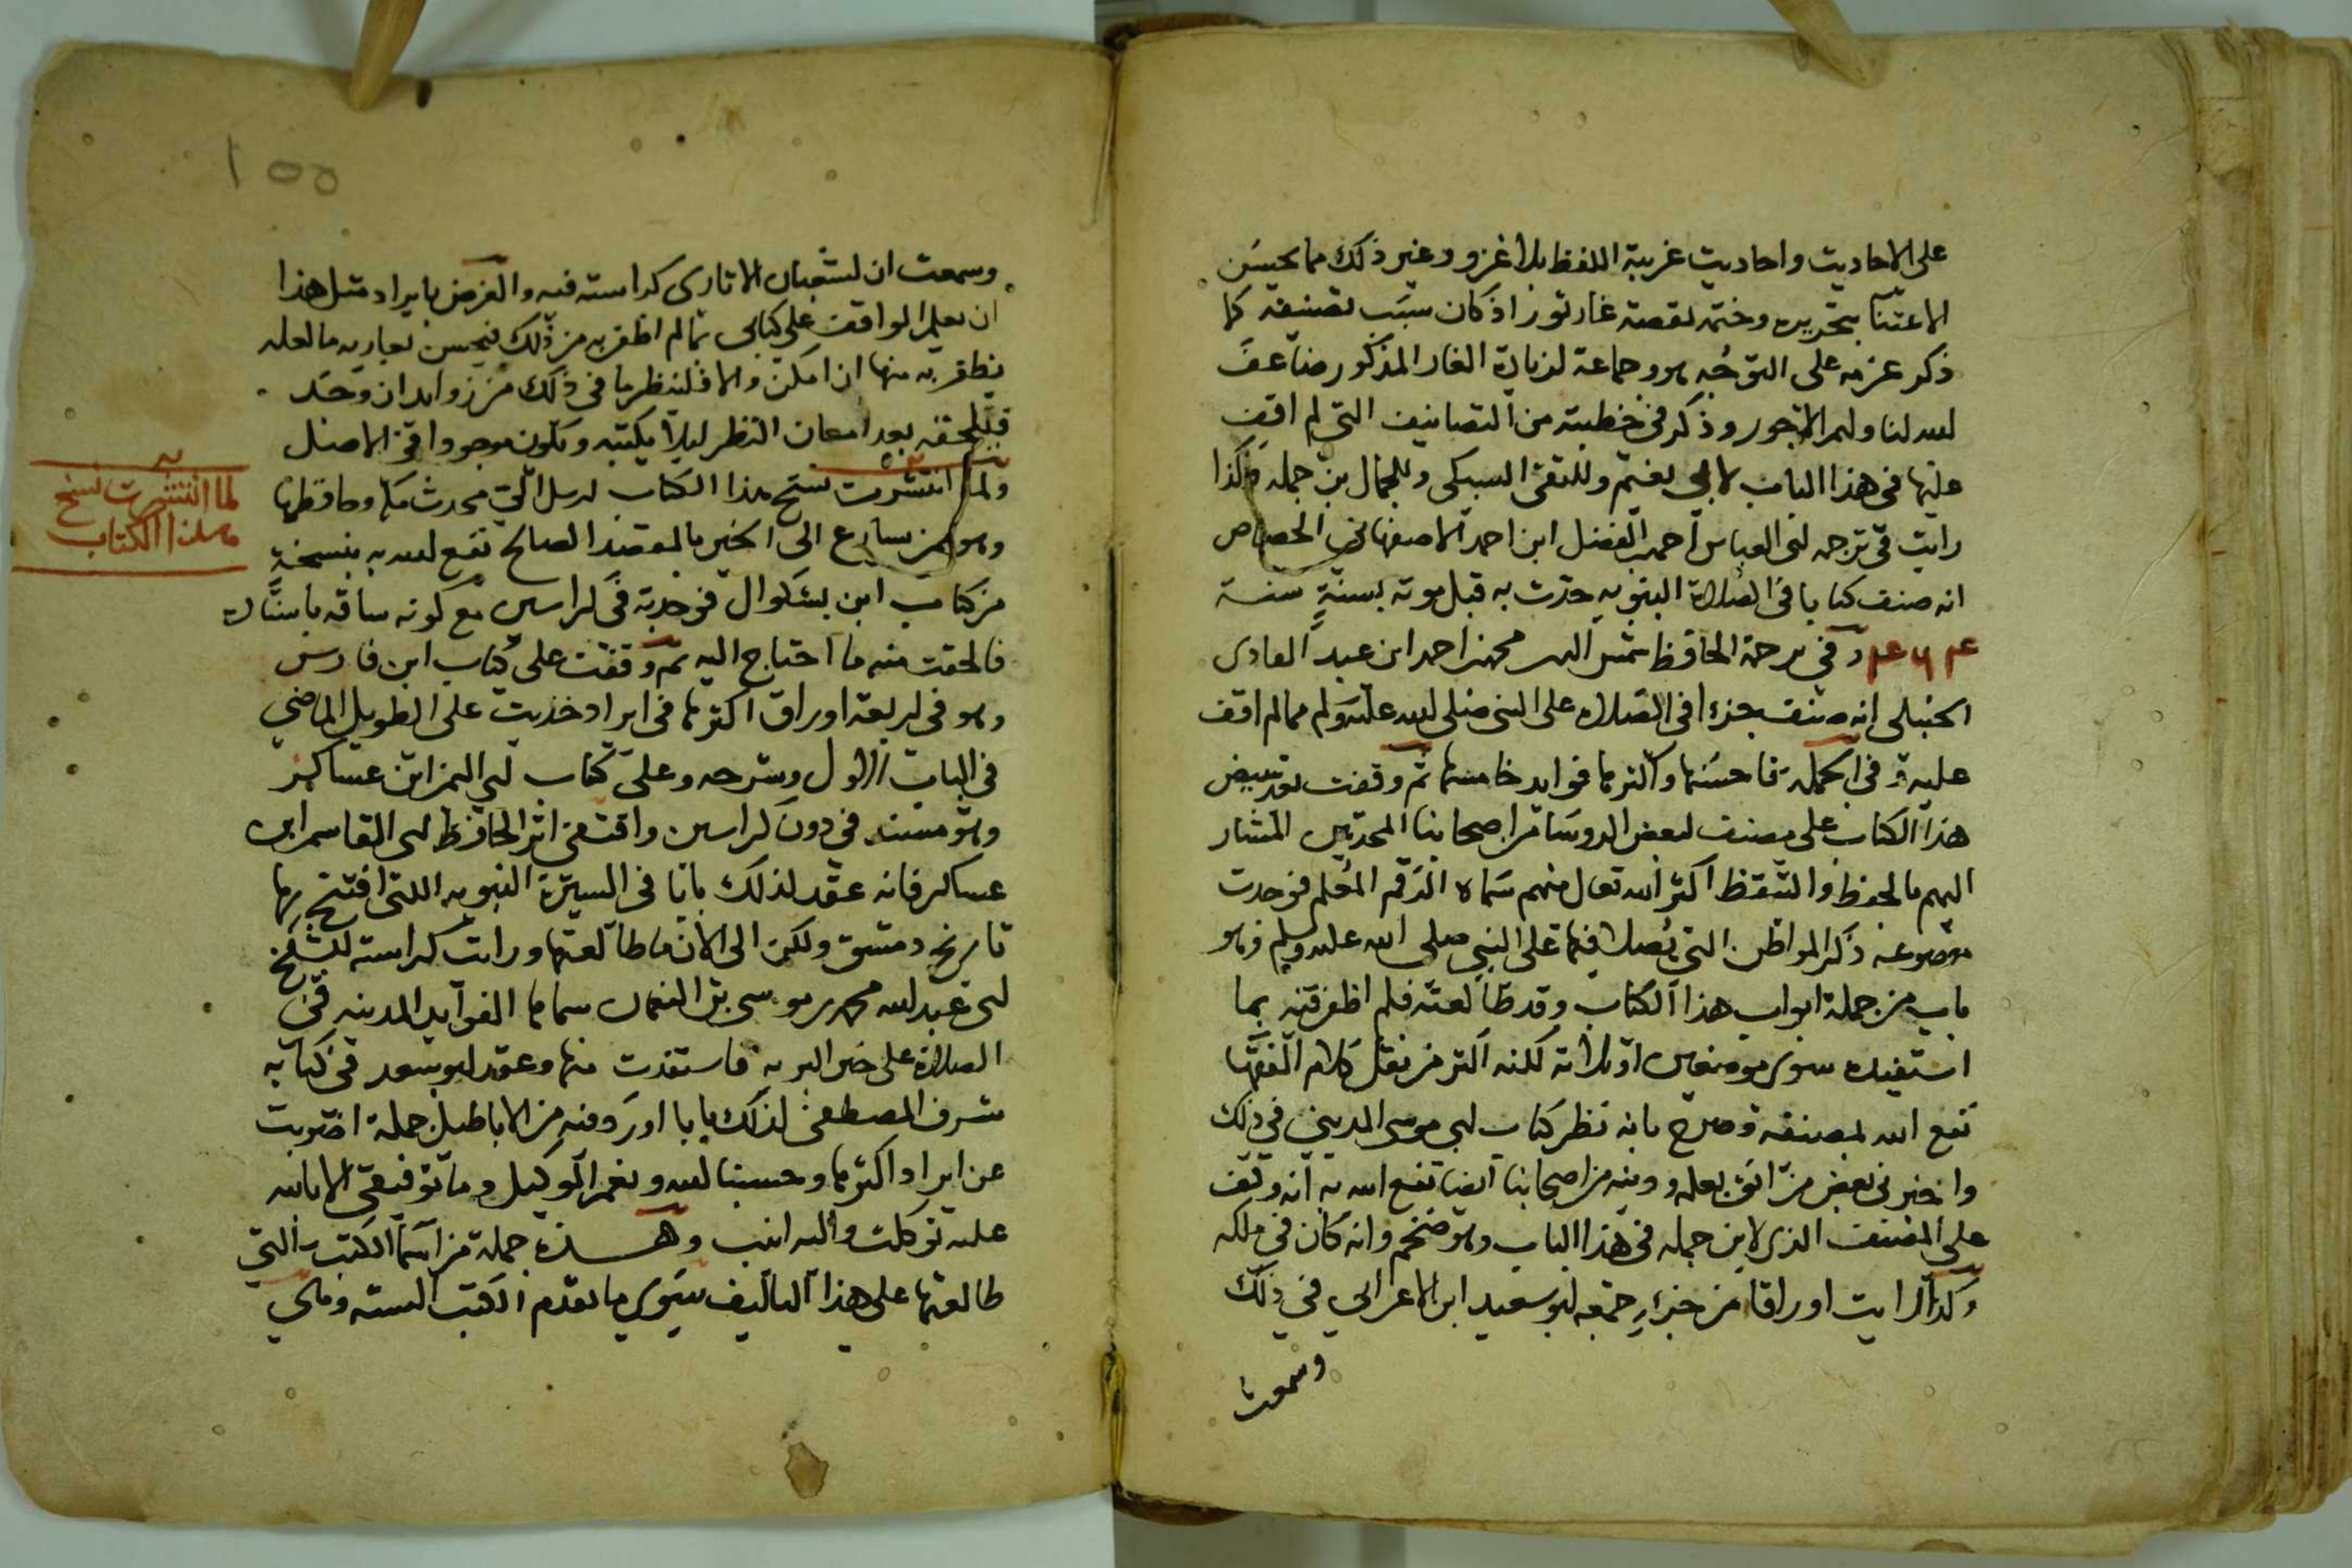 على الاحاديث واحاديث غريبة اللفظ بلا غزو وغير ذلك مما يحسن
الاعتنا بتحريره وختمه بقصة غار ثور اذ كان سبب تصنيفه كما
ذكر عزمه على التوجه هو وجماعة لزيارة الغار المذكور ضاعف
الله لنا ولهم الاجور وذكر في خطبته من التصانيف التي لم اقف
عليها في هذا الباب لابي نعيم وللتقى السبكى وللجمال بن جمله وكذا
رايت في ترجمه ابى العباس احمد الفضل ابن احمد الاصفهاني الخصاص
انه صنف كتابا في الصلاة النبويه حدث به قبل موته بسنة سنة
وفي ترجمة الحافظ شمس الدين محمد بن احمد ابن عبد الهادى
الحنبلى انه صنف جزءا في الصلاة على النبى صلى الله عليه وسلم مما لم اقف
عليه وفى الجمله فاحسنها واكثرها فوايد خامسها ثم وقفت بعد تبييض
هذا الكتاب على مصنف لبعض الروسا من اصحابنا المحدثين المشار
اليهم بالحفظ والتيقظ اكثر الله تعالى منهم سماه الرقم المعلم فوجدت
موضوعه ذكر المواطن التي يصلى فيها على النبي صلى الله عليه وسلم وهو
باب من جملة ابواب هذا الكتاب وقد طالعته فلم اظفر فيه بما
استفيده سوى موضعين او ثلاثة لكنه اكثر من نقل كلام الفقها
نفع الله بمصنفه وصرح بانه نظر كتاب ابى موسى المديني في ذلك
واخبرنى بعض من اثق بعلمه ودينه من اصحابنا ايضا نفع الله به انه وقف
على المصنف الذى لابن جمله في هذا الباب وهو ضخم وانه كان في ملكه
وكذا رايت اوراقا من جزء جمعه ابو سعيد ابن الاعرابي في ذلك
وسمعت
وسمعت ان لشعبان الاثارى كراسته فيه والغرض بايراد مثل هذا
ان يعلم الواقف على كتابى ما لم اظفر به من ذلك فيحسن بعاريه ما لعله
يظفر به منها ان امكن والا فلينظر ما في ذلك من زوايد ان وجد
فيلحقه بعد امعان النظر ليلا يكتبه ويكون موجودا في الاصل
ولما انتشرت نسخ هذا الكتاب ارسل الي محدث مكة وحافظها
وهو ممن سارع الى الخير بالمقصد الصالح نفع الله به بنسخة
من كتاب ابن بشكوال فوجدته في كراسين مع كونه ساقه باسناد
فالحقت منه ما احتاج اليه ثم وقفت على كتاب ابن فارس
وهو في اربعة اوراق اكثرها في ايراد حديث على الطويل الماضي
في الباب الاول وشرحه وعلى كتاب ابي اليمن ابن عساكر
وهو مسند في دون كراسين واقتفى اثر الحافظ ابى القاسم ابن
عساكر فانه عقد لذلك بابا في السيرة النبويه اللتى افتتح بها
تاريخ دمشق ولكن الى الان ما طالعتها ورايت كراسته للشيخ
ابى عبد الله محمد بن موسى بن النعمان سماها الفوايد المدنيه في
الصلاة على خير البريه فاستفدت منها وعقد ابو سعد في كتابه
شرف المصطفى لذلك بابا اورد فيه من الاباطيل جملة اضربت
عن ايراد اكثرها وحسبنا الله ونعم الوكيل وما توفيقى الا بالله
عليه توكلت واليه انيب وهذه جملة من اسما الكتب التي
طالعتها على هذا التاليف سوى ما تقدم الكتب الستة وهي
لما انتشرت نسخ
هذا الكتاب